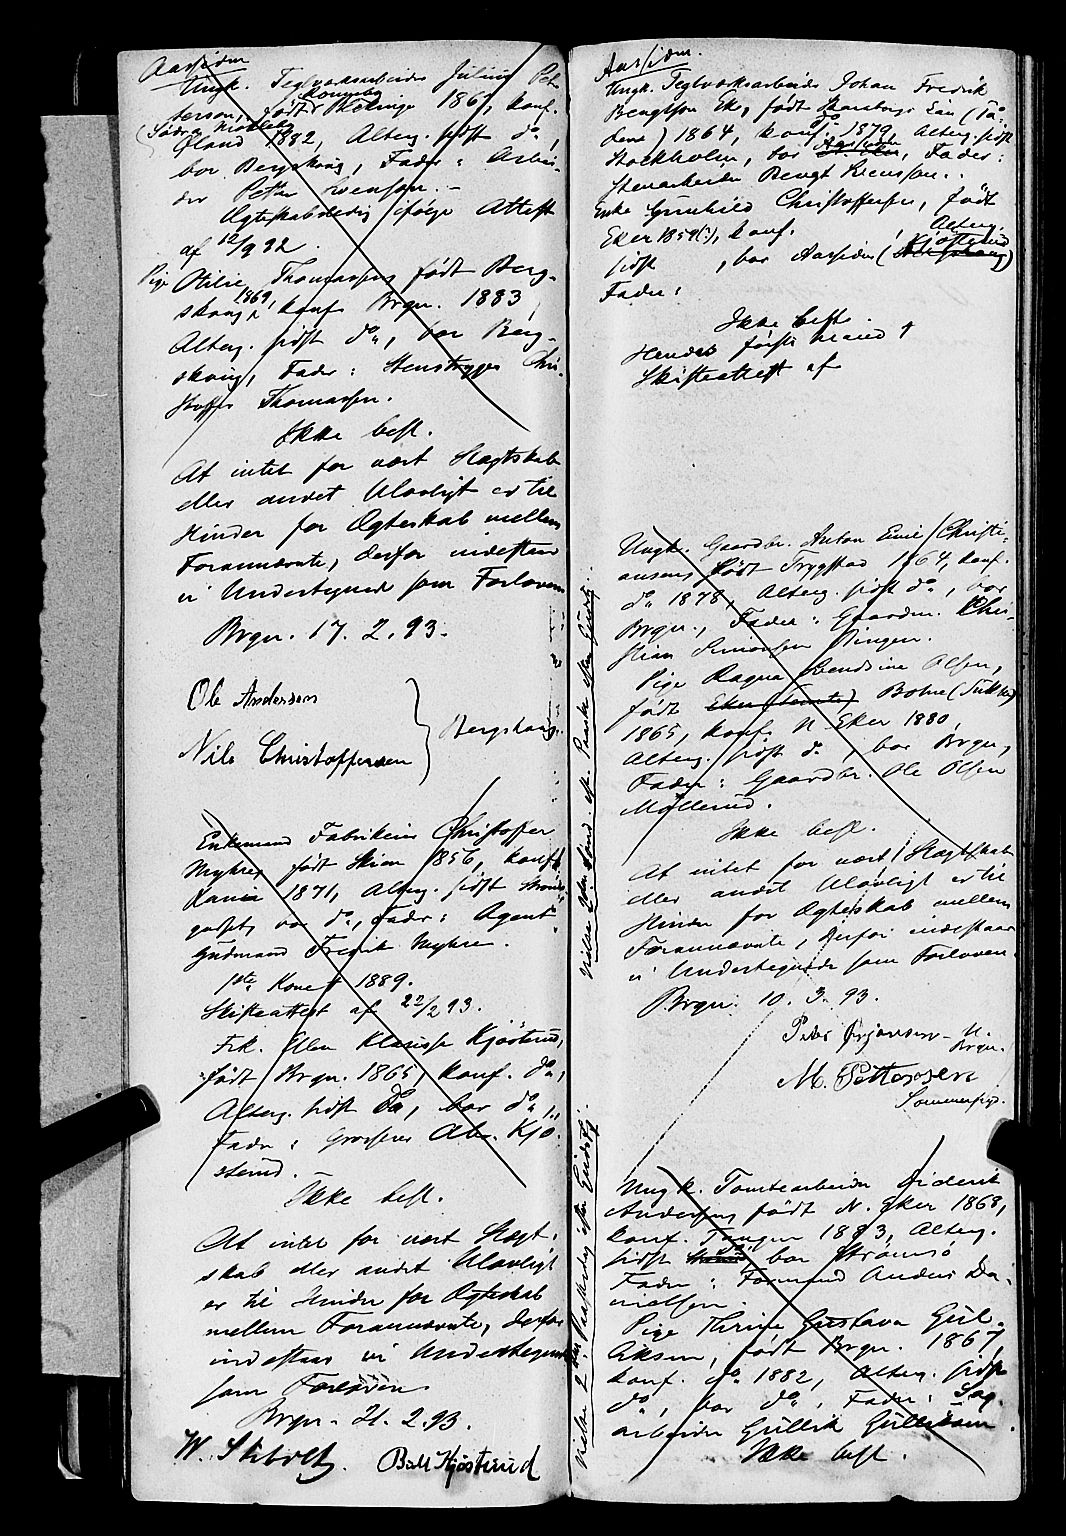 Aassiden
Ungk. Teglværksarbeider Julius Pet-
tersen, født Köping 1861, konf.
Öland 1882, Alterg. sidst do,
bor Bergskaug, Fader: Arbei-
der Petter Svenson. -
Ægteskabsledig ifølge Attest
af 12/9 92.
Pige Otilie Thomassen født Berg-
skaug 1869, konf. Brgn. 1883,
Alterg. sidst do, bor Berg-
skaug, Fader: Stenhugger Chri-
stoffer Thomassen.
Ikke besl.
At intet for vort Slægtskab
eller andet Ulovligt er til
Hinder for Ægteskab mellem
Forannævnte, derfor indestaar
vi Undertegnede som Forlovere
Brgn. 17. 2. 93.
Ole Andersen
Nils Christoffersen
Bergskaug.
Enkemand Fabrikeier Christoffer
Myhre, født Skien 1856, konf.
1871, Alterg. sidst Strøms-
godset, bor do, Fader: Agent
Gudmund Fredrik Myhre.
1ste Kone † 1889.
Skifteattest af 22/2 93.
Frk. Ellen Klarisse Kjøsterud,
født Brgn. 1865, konf. do,
Alterg. sidst do, bor do,
Fader: Grosserer Ab. Kjø-
sterud.
Ikke besl.
At intet for vort Slægt-
skab eller andet Ulovligt
er til Hinder for Ægteskab
mellem Forannævnte, derfor
indestaar vi Undertegnede
som Forlovere.
Brgn. 21. 2. 93.
W. Stibolt. Boll Kjøsterud
Aassiden.
Ungk. Teglværksarbeider Johan Fredrik
Bengtson Ek, født Skaraborgs Län
1864, konf. do 1879, Alterg. sidst
Stockholm, bor Aassiden, Fader:
Stenarbeider Bengt Svensson.
Enke Gunhild Christoffersen, født
Eker 1859(?), konf. Alterg.
sidst , bor Aassiden (Kjøsterud
Fader:
Ikke besl.
Hendes første Mand †
Skifteattest af
Ungk. Gaardbr. Anton Emil Christi-
ansen, født Trygstad 1864, konf.
do 1878, Alterg. sidst do, bor
Brgn., Fader: Gaardm. Chri-
stian Simonsen Ringen.
Pige Ragna Olsen,
født Eker
1865, konf. N. Eker 1880,
Alterg. sidst do, bor Brgn,
Fader: Gaardbr. Ole Olsen
Møllerud.
Ikke besl.
At intet for vort Slægtskab
eller andet Ulovligt er til
Hinder for Ægteskab mellem
Forannævnte, derfor indestaar
vi Undertegnede som Forlovere.
Brgn. 10. 3. 93.
Peder Ørjansen - N.
Brgn.
M. Pettersen
Ungk. Tomtearbeider Diderik
Andersen, født N. Eker 1868,
konf. Tangen 1883, Alterg.
sidst do bor Strømsø
Fader: Formand Anders Da-
nielsen.
Pige Thrine Gustava Gul-
liksen, født Brgn. 1867,
konf. do 1882, Alterg. sidst
do, bor do, Fader: Sag-
arbeider Gullik Gulliksen
Ikke besl.